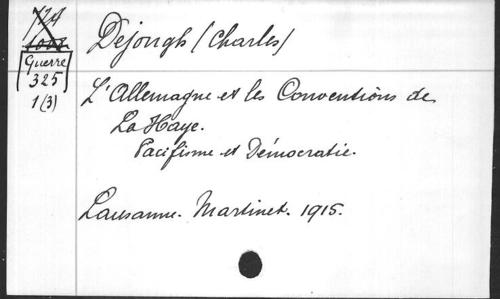 Dejongh (Charles)
Guerre
325
1(3)
L'Allemagne et les Conventions de
La Haye.
Pacifisme et Démocratie.
Lausanne. Martinet. 1915.